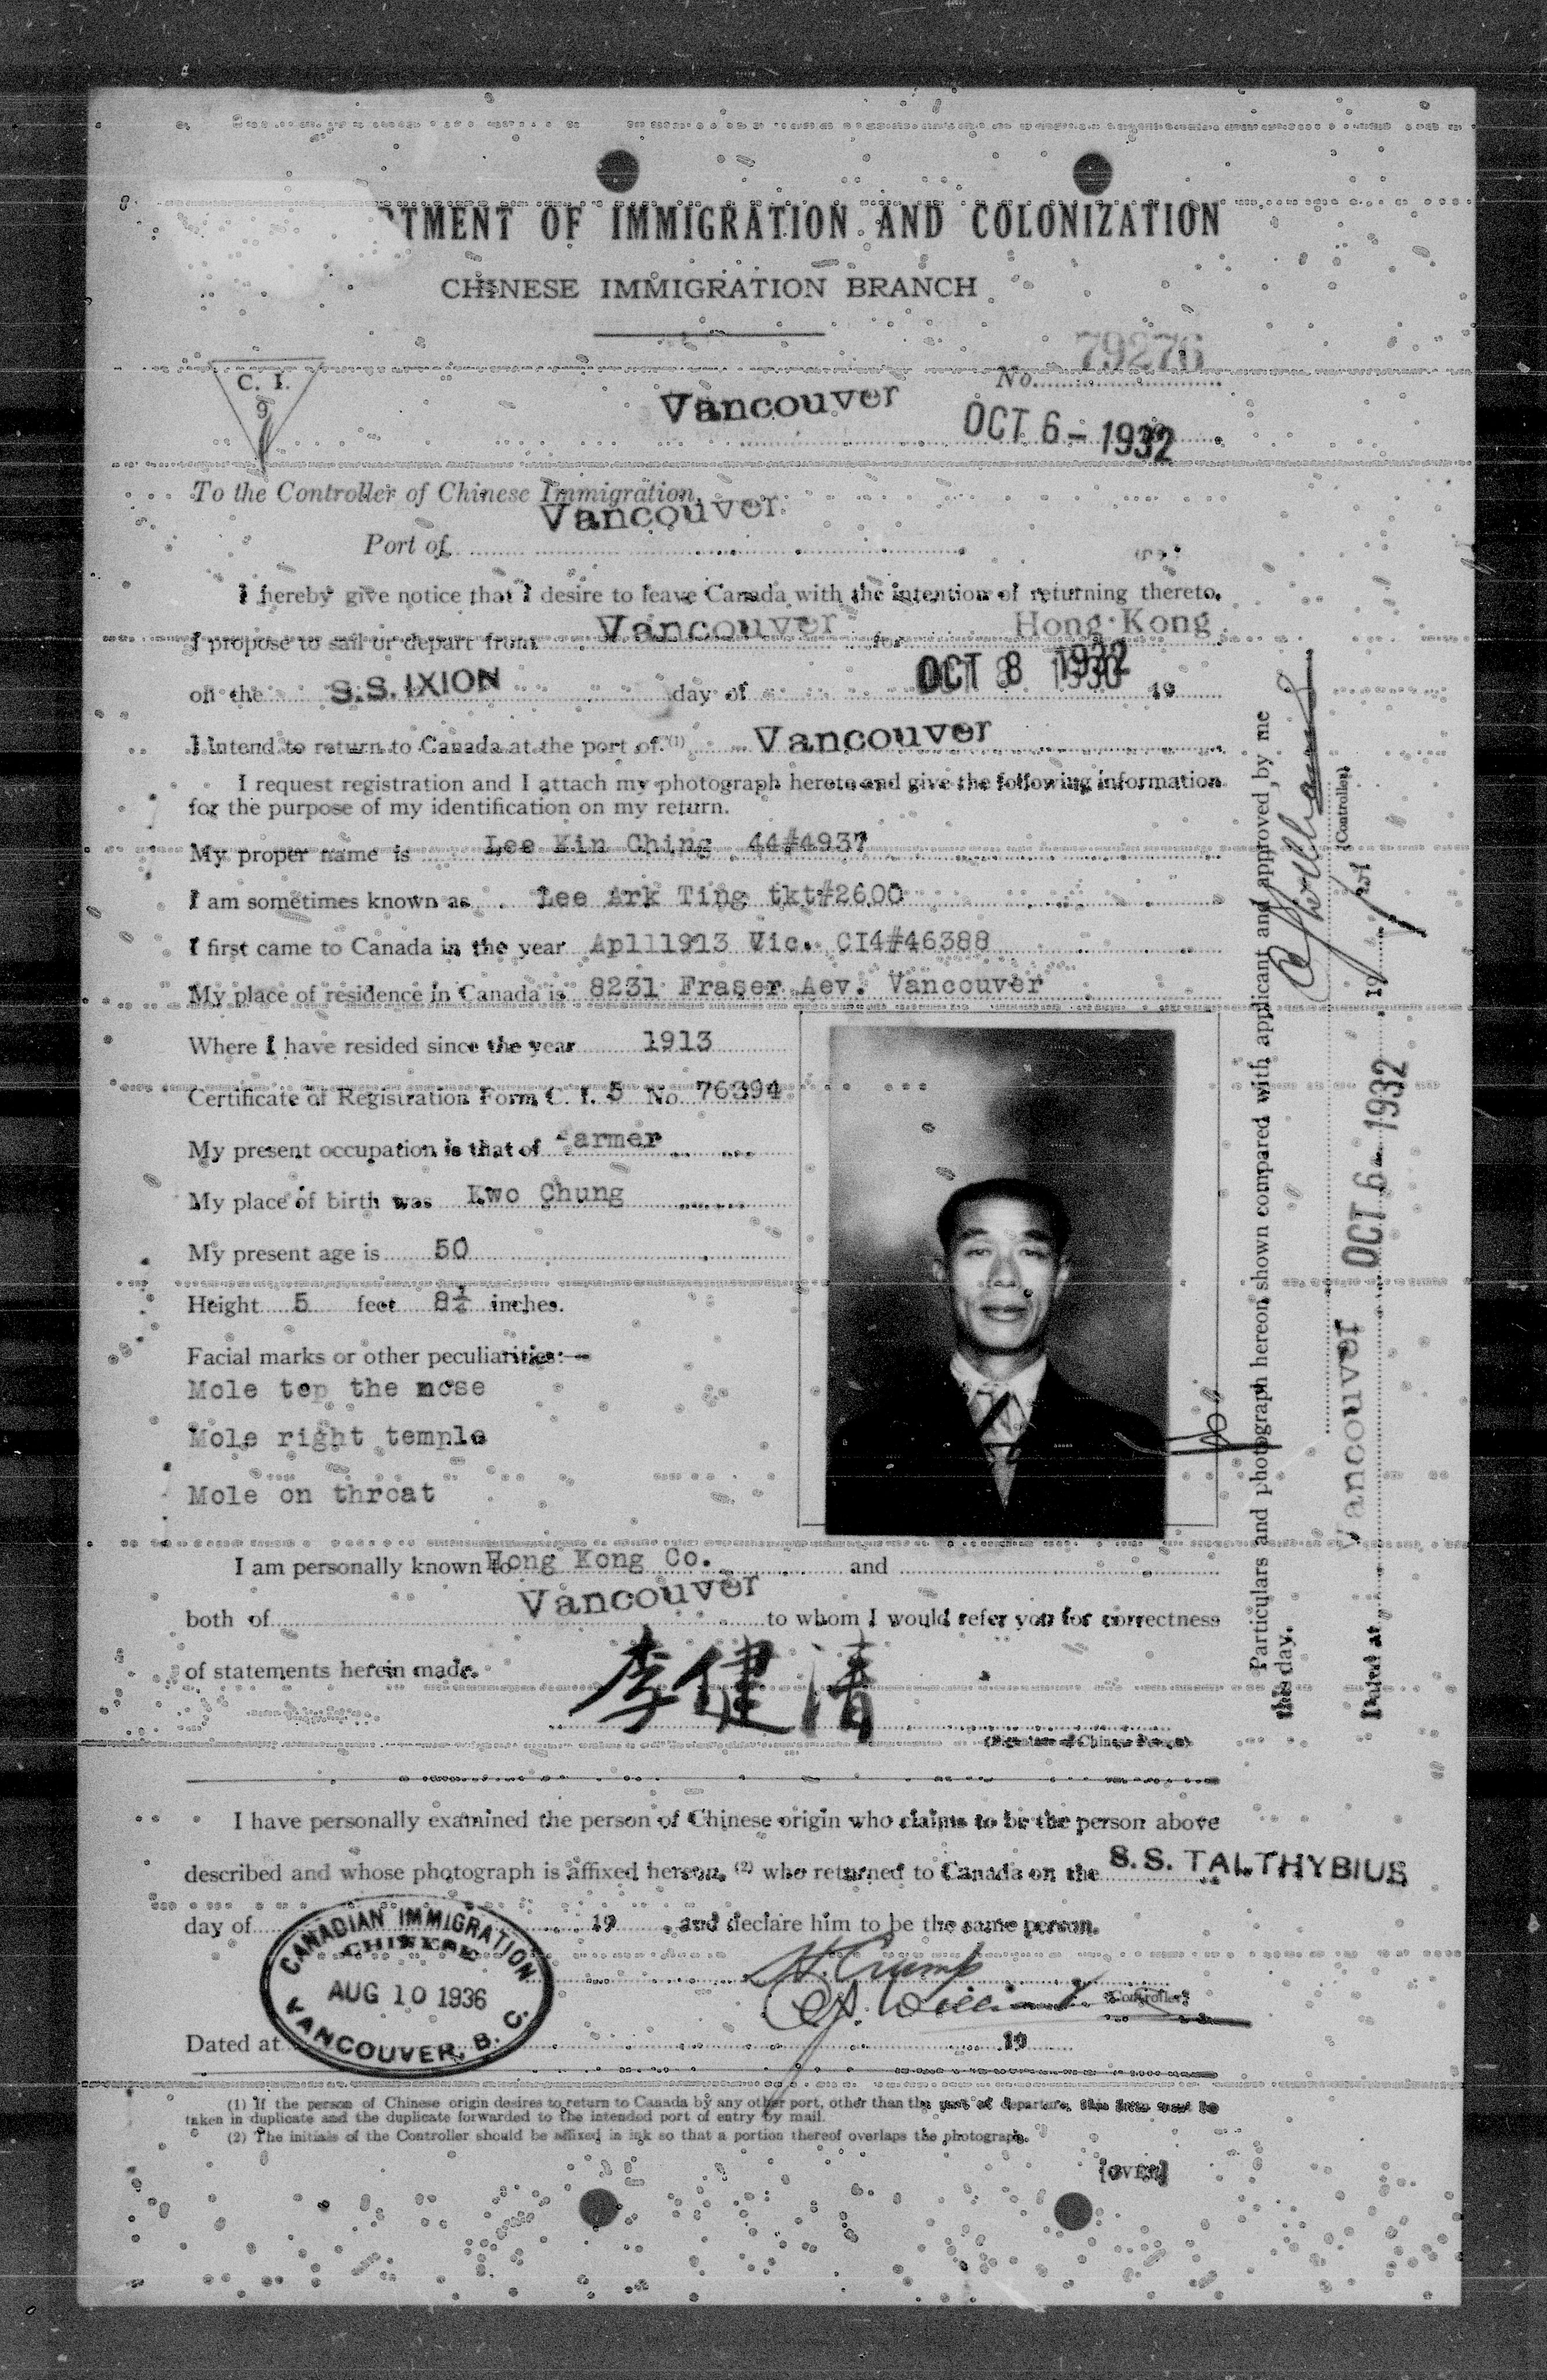 RTMENT OF IMMIGRATION AND COLONIZATION
CHINESE IMMIGRATION BRANCH
No. 79276
C. I.
9
Vancouver OCT 6 - 1932
To the Controller of Chinese Immigration,
Port of Vancouver
I hereby give notice that I desire to leave Canada with the intention of returning thereto.
I propose to sail or depart from Vancouver for Hong Kong
on the S.S. IXION day of OCT 8 1932 19
I intend to return to Canada at the port of (1) Vancouver
I request registration and I attach my photograph hereto and give the following information
for the purpose of my identification on my return.
My proper name is Lee Kin Ching 44#4937
I am sometimes known as Lee Ark Ting tkt#2600
I first came to Canada in the year Apl11913 Vic. CI4#46388
My place of residence in Canada is 8231 Fraser Aev. Vancouver
Where I have resided since the year 1913
Certificate of Registration Form C. I. 5 No. 76394
My present occupation is that of Farmer
My place of birth was Kwo Chung
My present age is 50
Height 5 feet 8 inches.
Facial marks or other peculiarities:—
Mole top the nose
Mole right temple
Mole on throat
I am personally known to Hong Kong Co. and
both of Vancouver to whom I would refer you for correctness
of statements herein made.
李健清
(Signature of Chinese Person)
I have personally examined the person of Chinese origin who claims to be the person above
described and whose photograph is affixed hereon, (2) who returned to Canada on the S.S. TALTHYBIUS
day of 19 and declare him to be the same person.
H. Crump
Controller
Dated at 19
CANADIAN IMMIGRATION
CHINESE
AUG 10 1936
VANCOUVER, B. C.
(1) If the person of Chinese origin desires to return to Canada by any other port, other than the port of departure, this form must be
taken in duplicate and the duplicate forwarded to the intended port of entry by mail.
(2) The initials of the Controller should be affixed in ink so that a portion thereof overlaps the photograph.
[OVER]
Particulars and photograph hereon shown compared with applicant and approved, by me
this day.
(Controller)
Dated at Vancouver OCT 6 - 1932 19